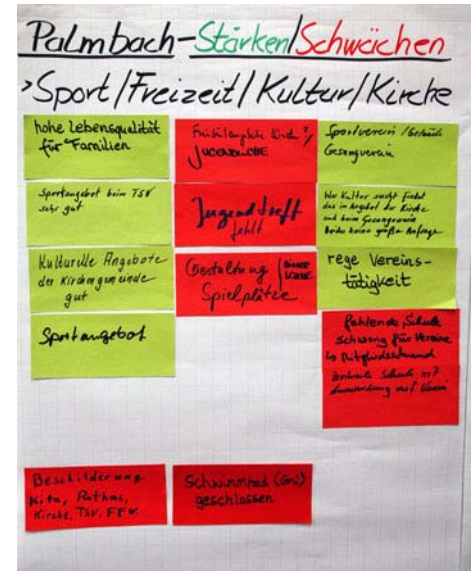 Palmbach-Stärken/Schwächen
>Sport/Freizeit/Kultur/Kirche
hohe Lebensqualität
für Familien
Sportangebot beim TSV
sehr gut
Kulturelle Angebote
der Kirchengemeinde
gut
Sportangebot
Jugendliche
Jugendtreff
fehlt
Gestaltung
Spielplätze
Sportverein/
Gesangverein
Wer Kultur sucht findet
das im Angebot der Kirche
und beim Gesangverein
keine große
rege Vereins-
tätigkeit
fehlende Schule
schwierig für Vereine
Schule mit
auf Verein
Beschilderung
Kita, Rathaus,
Kirche, TSV, FFW.
Schwimmbad (Grü)
geschlossen